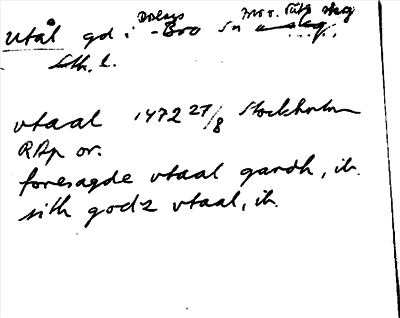 Utål gd i Dalbys -Bro sn
Sth. l.
vtaal 1472 27/8 Stockholm
RAp or.
foresagde vtaal gardh, ib.
sith godz vtaal, ib.